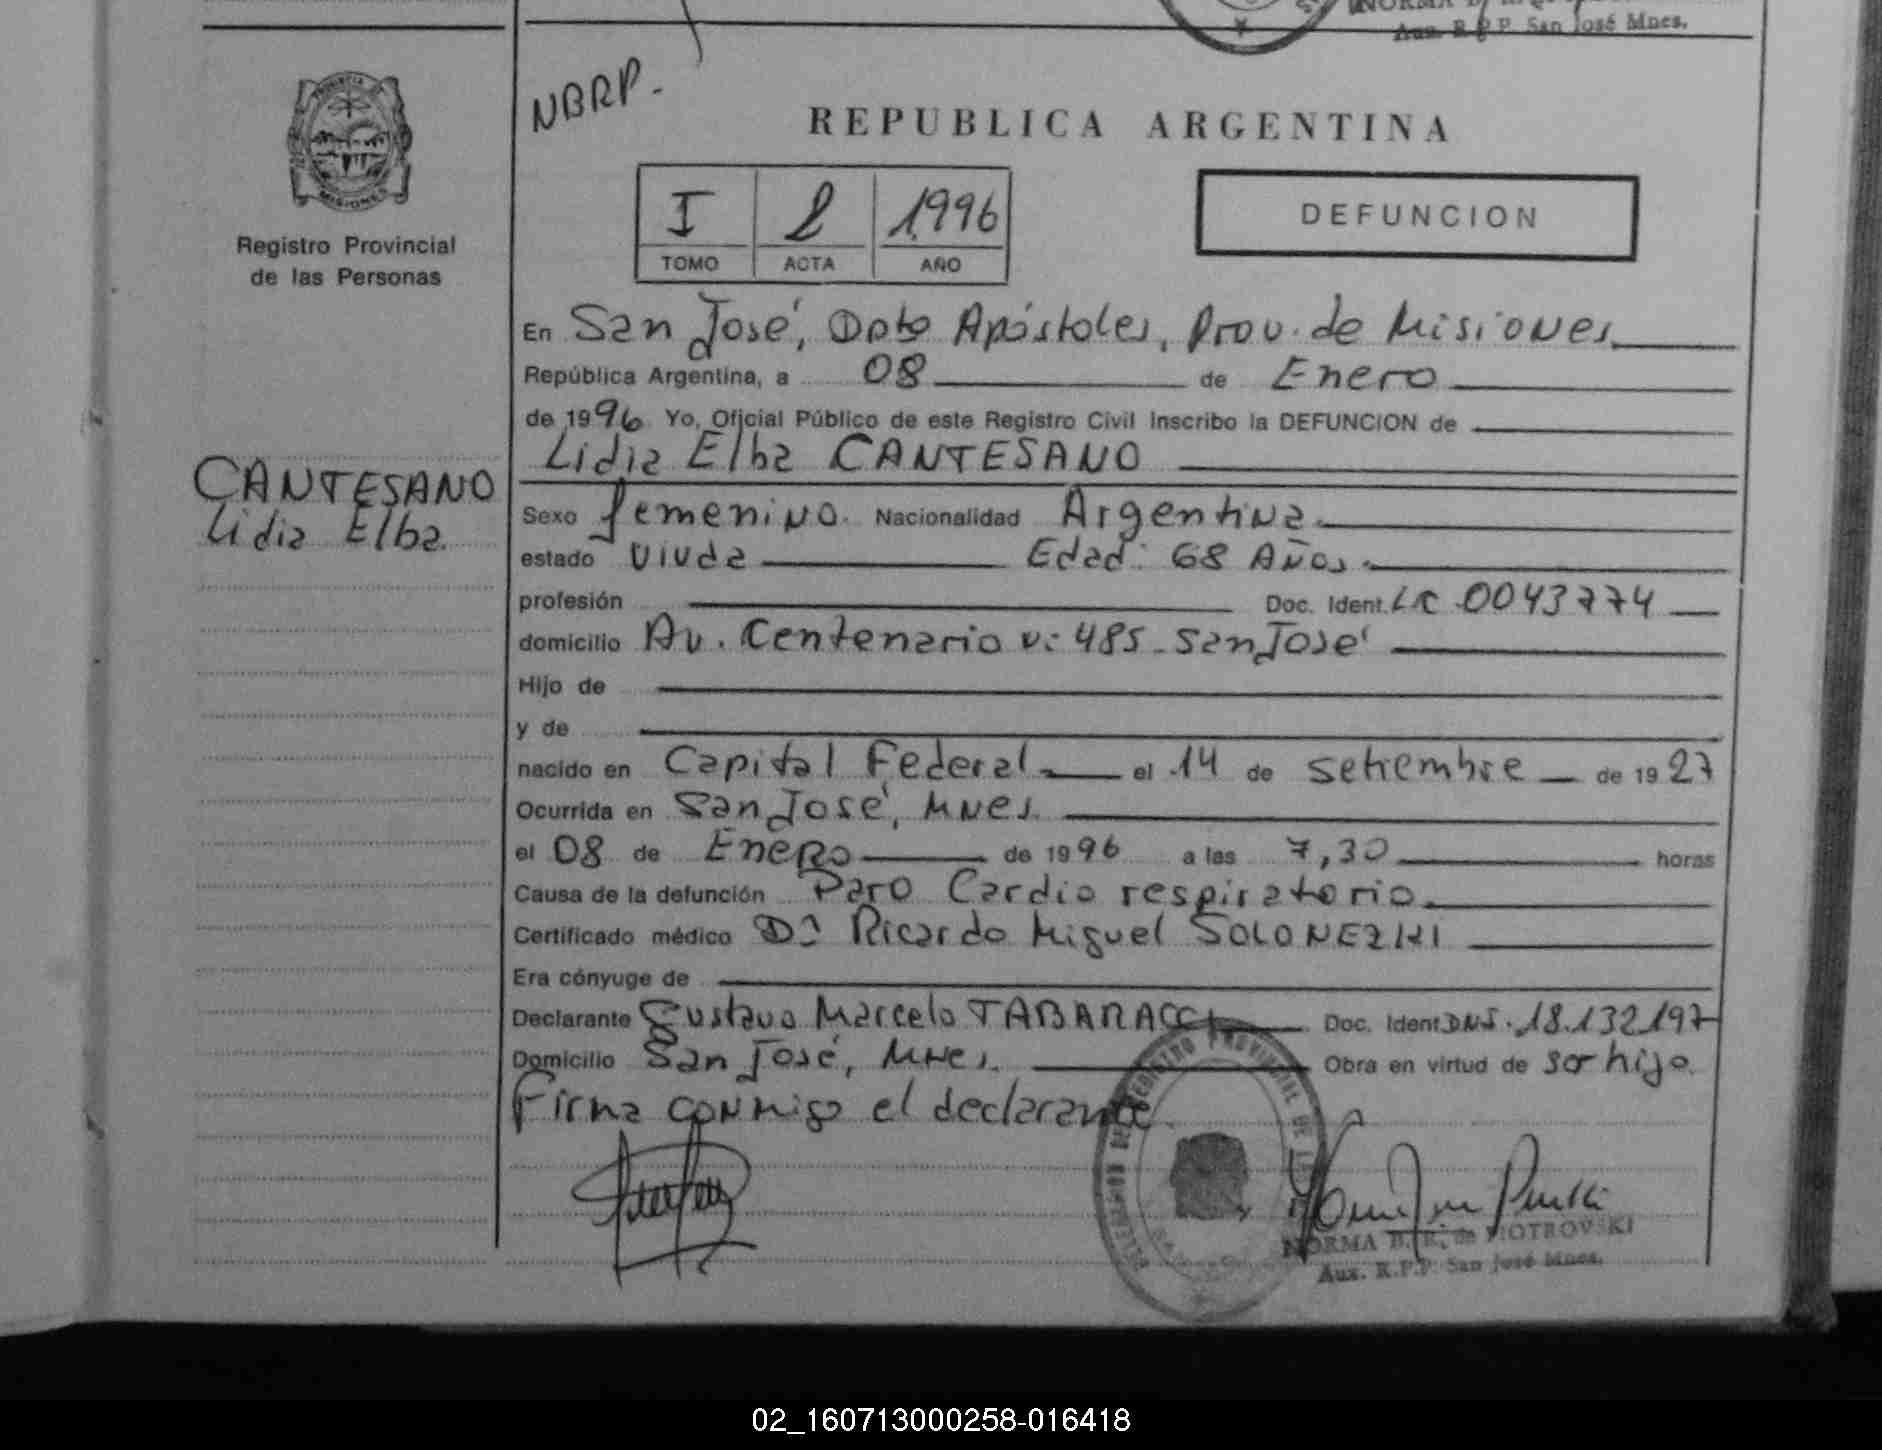 Aux. R.P.P. San José Mnes.
NBRP.
REPUBLICA ARGENTINA
MISIONES
Registro Provincial
de las Personas
I 2 1996
TOMO ACTA AÑO
DEFUNCION
En San José, Dpto Apóstoles, Prov. de Misiones
República Argentina, a 08 de Enero
de 1996 Yo, Oficial Público de este Registro Civil Inscribo la DEFUNCION de
Lidia Elba CANTESANO
CANTESANO
Lidia Elba
Sexo femenino. Nacionalidad Argentina.
estado viuda Edad: 68 Años.
profesión Doc. Ident. LC 0043774
domicilio Av. Centenario N: 485 - San José
Hijo de
y de
nacido en Capital Federal el 14 de setiembre de 1927
Ocurrida en San José, Mnes.
el 08 de Enero de 1996 a las 7,30 horas
Causa de la defunción Paro Cardio respiratorio.
Certificado médico Dr Ricardo Miguel SOLONEZKI
Era cónyuge de
Declarante Gustavo Marcelo TABARACCI Doc. Ident DNI. 18.132.197
Domicilio San José, Mnes. Obra en virtud de ser hijo.
Firma conmigo el declarante.
NORMA B. R. de PIOTROVSKI
Aux. R.P.P. San José Mnes.
02_160713000258-016418